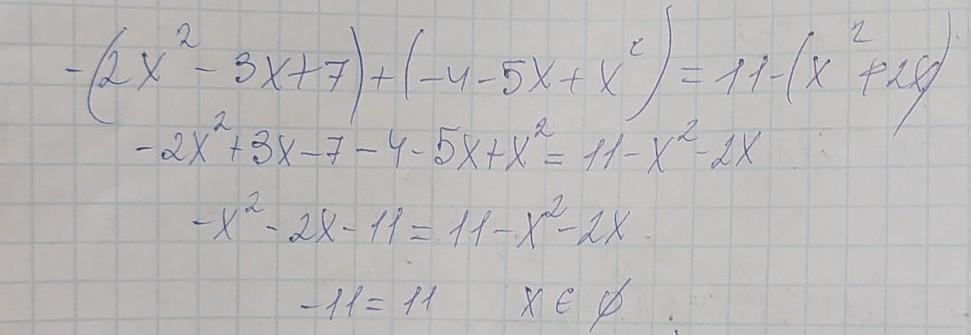 -(2x² - 3x + 7) + (-4 - 5x + x²) = 11 - (x² + 2x)
-2x² + 3x - 7 - 4 - 5x + x² = 11 - x² - 2x
-x² - 2x - 11 = 11 - x² - 2x
-11 = 11 x ∈ ∅